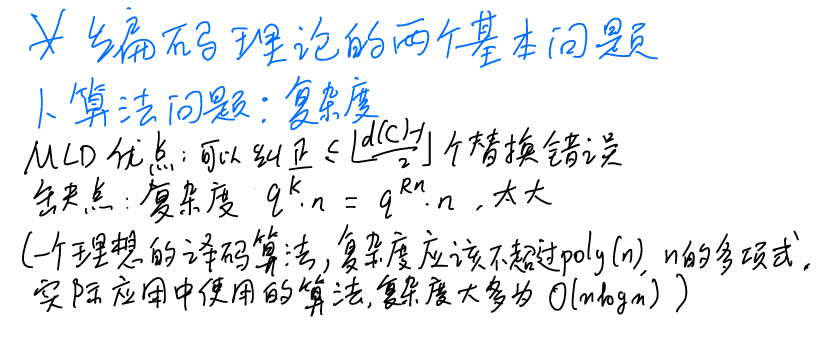 * 编码理论的两个基本问题
1. 算法问题：复杂度
MLD 优点：可以纠正 ≤ ⌊(d(C)-1)/2⌋ 个替换错误
缺点：复杂度 q^k·n = q^{Rn}·n，太大
(一个理想的译码算法，复杂度应该不超过poly(n)，n的多项式，
实际应用中使用的算法，复杂度大多为 O(nlogn))